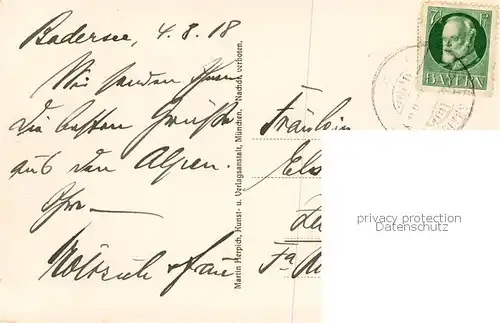 Badersee, 4.8.18
Wir senden Ihnen
die besten Grüße
aus den Alpen.
Ihre
u. Frau
Martin Herpich, Kunst- u. Verlagsanstalt, München. Nachdr. verboten.
7½
BAYERN
Fräulein
Els
privacy protection
Datenschutz